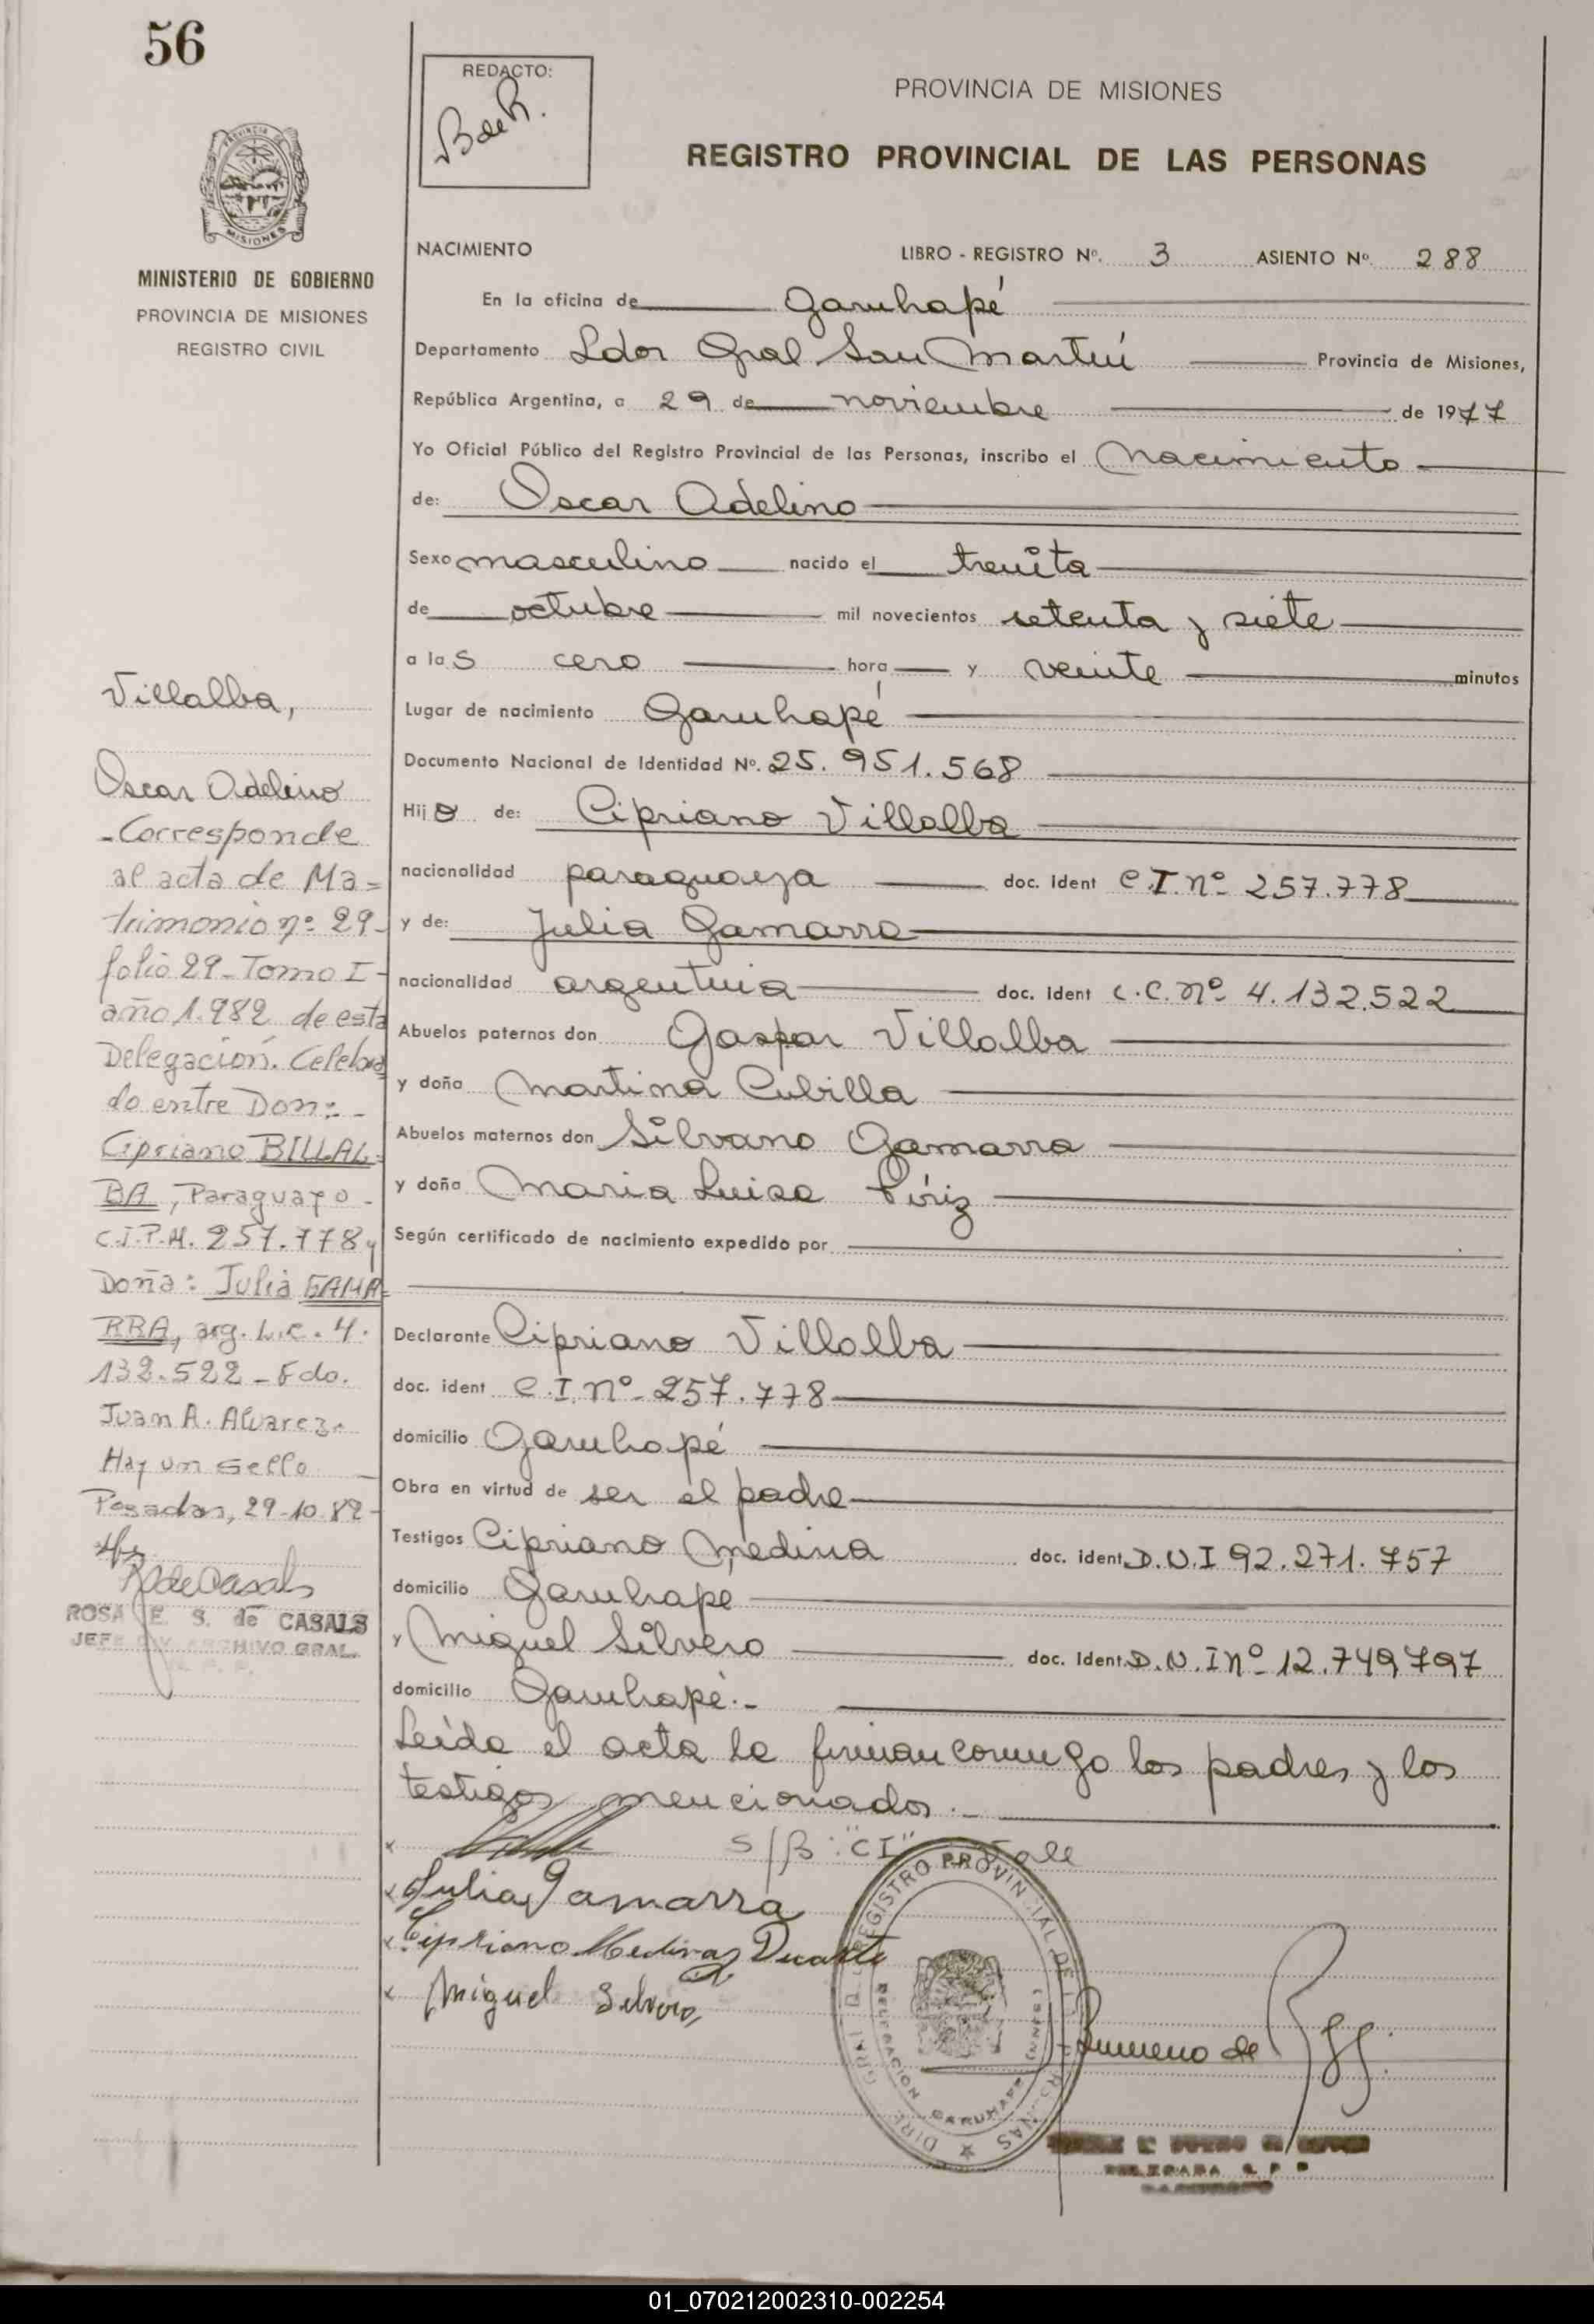 56
REDACTO:
B de R.
PROVINCIA DE MISIONES
REGISTRO PROVINCIAL DE LAS PERSONAS
PROVINCIA DE
MISIONES
MINISTERIO DE GOBIERNO
PROVINCIA DE MISIONES
REGISTRO CIVIL
NACIMIENTO LIBRO - REGISTRO Nº. 3 ASIENTO Nº. 288
En la oficina de Garuhapé
Departamento Ldor Gral San Martín Provincia de Misiones,
República Argentina, a 29 de noviembre de 1977
Yo Oficial Público del Registro Provincial de las Personas, inscribo el nacimiento
de: Oscar Adelino
Sexo masculino nacido el treinta
de octubre mil novecientos setenta y siete
a las cero hora y veinte minutos
Lugar de nacimiento Garuhapé
Documento Nacional de Identidad Nº. 25.951.568
Hijo de: Cipriano Villalba
nacionalidad paraguaya doc. Ident C.I. nº 257.778
y de: Julia Gamarra
nacionalidad argentina doc. Ident L.C. nº 4.132.522
Abuelos paternos don Gaspar Villalba
y doña Martina Cubilla
Abuelos maternos don Silvano Gamarra
y doña Maria Luisa Píriz
Según certificado de nacimiento expedido por
Declarante Cipriano Villalba
doc. ident C.I. nº 257.778
domicilio Garuhapé
Obra en virtud de ser el padre
Testigos Cipriano Medina doc. ident. D.N.I 92.271.757
domicilio Garuhape
y Miguel Silvero doc. Ident. D.N.I nº 12.749.797
domicilio Garuhapé.-
Leída el acta la firman conmigo los padres y los
testigos mencionados.-
S/B: "CI" Vale
x
x Julia Gamarra
x Cipriano Medina Duarte
x Miguel Silvero,
Villalba,
Oscar Adelino
-Corresponde
al acta de Ma=
trimonio nº 29-
folio 29-Tomo I-
año 1.982 de esta
Delegación. Celebra
do entre Don:-
Cipriano BILLAL=
BA, Paraguayo-
C.I.P.M. 257.778 y
Doña: Julia GAMA=
RRA, arg. L.C. 4.
132.522-Fdo.
Juan A. Alvarez-
Hay un sello
Posadas, 29-10-82-
R de Casals
ROSA E. S. de CASALS
JEFE DIV ARCHIVO GRAL.
R. P. P.
DIRE GRAL D REGISTRO PROVINCIAL DE LAS PERSONAS
DELEGACION GARUHAPE (MNES)
DELEGADA R P P
01_070212002310-002254